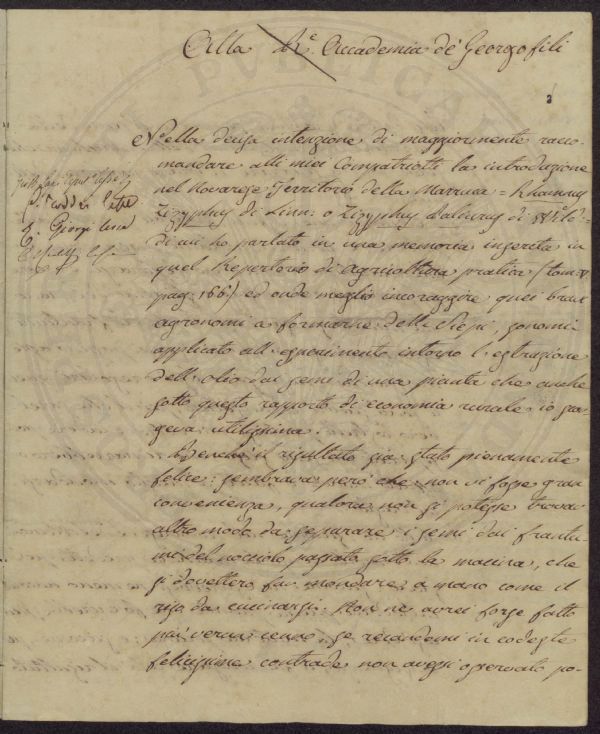 Alla Rle. Accademia de' Georgofili
Nella decisa intenzione di maggiormente racco-
mandare alli miei Compatriotti la introduzione
nel Novarese Territorio della Marruca = Rhamnus
Zizyphus di Linn: o Zizyphus Paliurus di
di cui ho parlato in una memoria inserita in
quel Repertorio di Agricoltura pratica (tom: V
pag: 166) ed onde meglio incoraggire quei bravi
agronomi a formarne delle siepi, sonomi
applicato all'esperimento intorno l'estrazione
dell'olio dai semi di una pianta che anche
sotto questo rapporto di economia rurale io spe-
utilissima.
Benchè il risultato sia stato pienamente
felice: sembrava però che non vi fosse gran
convenienza, qualora non si potesse trovar
altro modo da separare i semi dai frantu-
mi del nocciolo passato sotto la macina, che
si dovettero far mondare a mano come il
riso da cucinarsi. Non ne avrei forse fatto
più verun cenno, se recandomi in codeste
felicissime contrade non avessi osservato po-